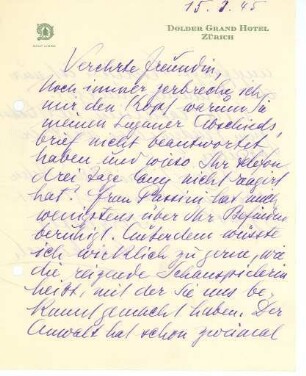 DOLDER GRAND HOTEL
ZÜRICH
15. 8. 45
Verehrte Freundin,
Noch immer zerbreche ich
mir den Kopf warum Sie
meinen Luganer Abschieds
brief nicht beantwortet
haben und wieso Ihr Telefon
drei Tage lang nicht reagirt
hat? Frau Passini hat mich
wenigstens über Ihr Befinden
beruhigt. Außerdem wüsste
ich wirklich zu gerne, wie
die reizende Schauspielerin
heißt, mit der Sie uns be-
kannt gemacht haben. Der
Anwalt hat schon zweimal